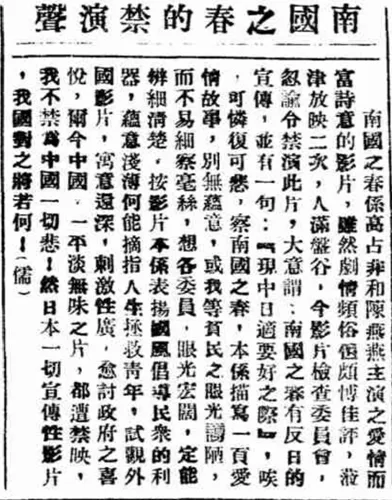 南國之春的禁演聲
南國之春係高占雍和陳燕燕主演之愛情而
富詩意的影片，雖然劇情頗俗頗博佳評，蒞
津放映二次，人滿盤谷，今影片檢查委員曾，
忽諭令禁演此片，大意謂：南國之春有反日的
宣傳，並有一句：『現中日適要好之際』，唉
，可憐復可悲，察南國之春，本係描寫一頁愛
情故事，別無蘊意，或我等貧民之眼光謭陋，
而不易細察毫絲，想各委員，眼光宏闊，定能
辨細清楚。按影片本係表揚國風倡導民衆的利
器，蘊意淺薄何能摘指人生拯救青年，試觀外
國影片，寓意還深，刺激性廣，愈討政府之喜
悅，爾今中國，一平淡無味之片，都遭禁映，
我不禁爲中國一切悲！然日本一切宣傳性影片
，我國對之將若何！（儒）